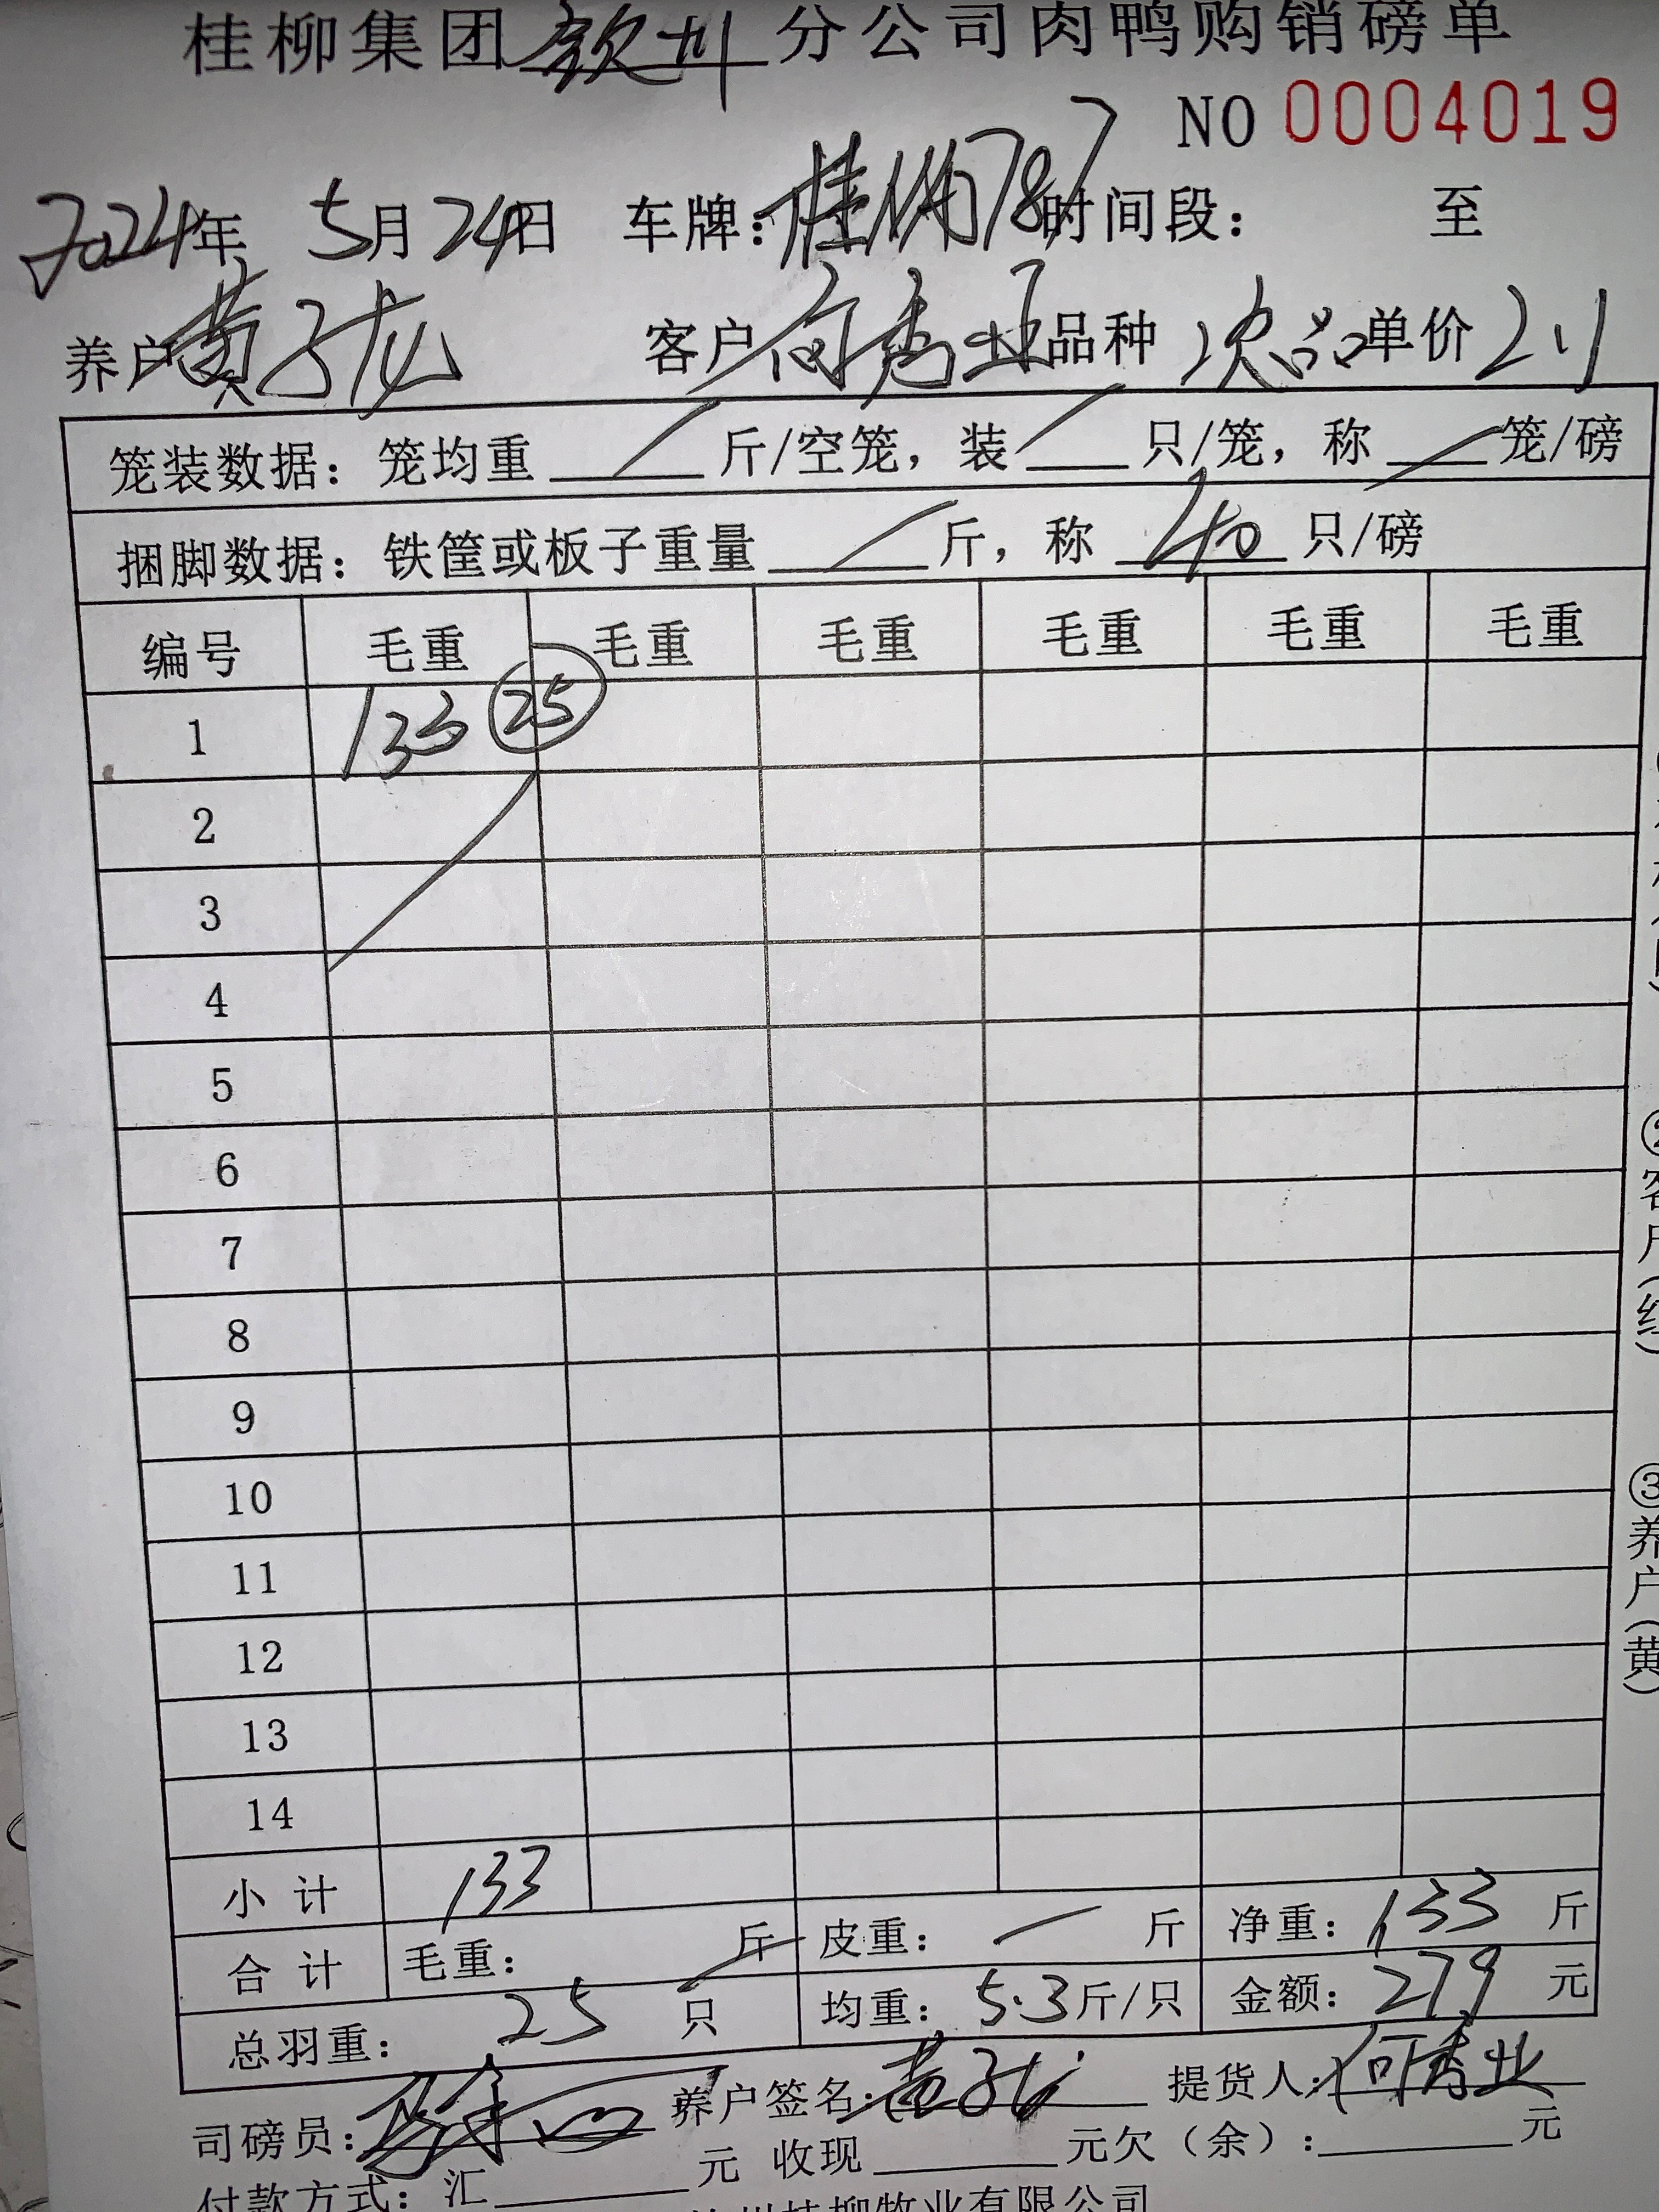 桂柳集团钦州分公司肉鸭购销磅单
NO 0004019
2024年 5月24日 车牌:桂 787 时间段: 至
养户 黄子龙 客户 何秀业 品种 次品 单价 2.1
笼装数据: 笼均重 / 斤/空笼, 装 / 只/笼, 称 / 笼/磅
捆脚数据: 铁筐或板子重量 / 斤, 称 40 只/磅
编号 毛重 毛重 毛重 毛重 毛重 毛重
1 133 25
2
3
4
5
6
7
8
9
10
11
12
13
14
小计 133
合计 毛重: / 斤 皮重: / 斤 净重: 133 斤
总羽重: 25 只 均重: 5.3斤/只 金额: 279 元
司磅员: 养户签名: 黄子龙 提货人: 何秀业
付款方式: 汇 元 收现 元欠(余): 元
桂柳牧业有限公司
②客户(红)
③养户(黄)